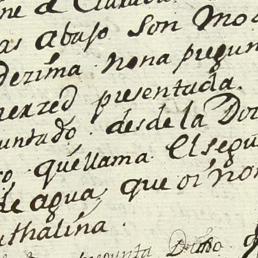 ne de Clara
as abajo son mo
Dezima nona pregun
merzed presentada.
untado desde la Do
o quellama. El segu
de agua, que oi no
uthalina.
pregunta Dicho